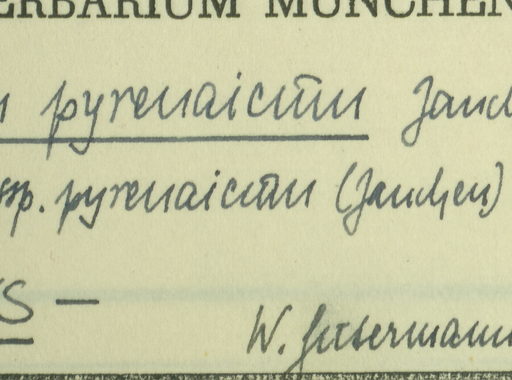 ERBARIUM MÜNCHEN
pyrenaicum Janch
ssp. pyrenaicum (Janchen)
S —
W. Gutermann